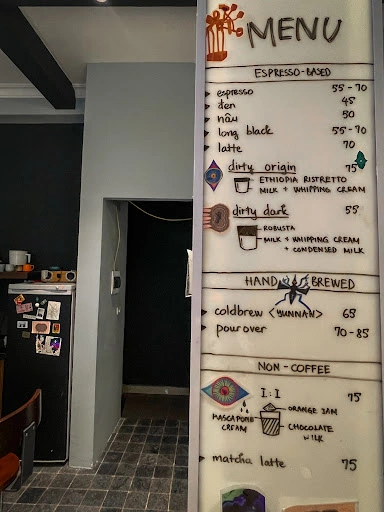 MENU
ESPRESSO-BASED
espresso 55-70
đen 45
nâu 50
long black 55-70
latte 70
dirty origin 75
ETHIOPIA RISTRETTO
MILK + WHIPPING CREAM
dirty dark 55
ROBUSTA
MILK + WHIPPING CREAM
+ CONDENSED MILK
HAND BREWED
coldbrew <YUNNAN> 65
pour over 70-85
NON-COFFEE
I:I 75
ORANGE JAM
MASCAPONE
CREAM
CHOCOLATE
MILK
matcha latte 75